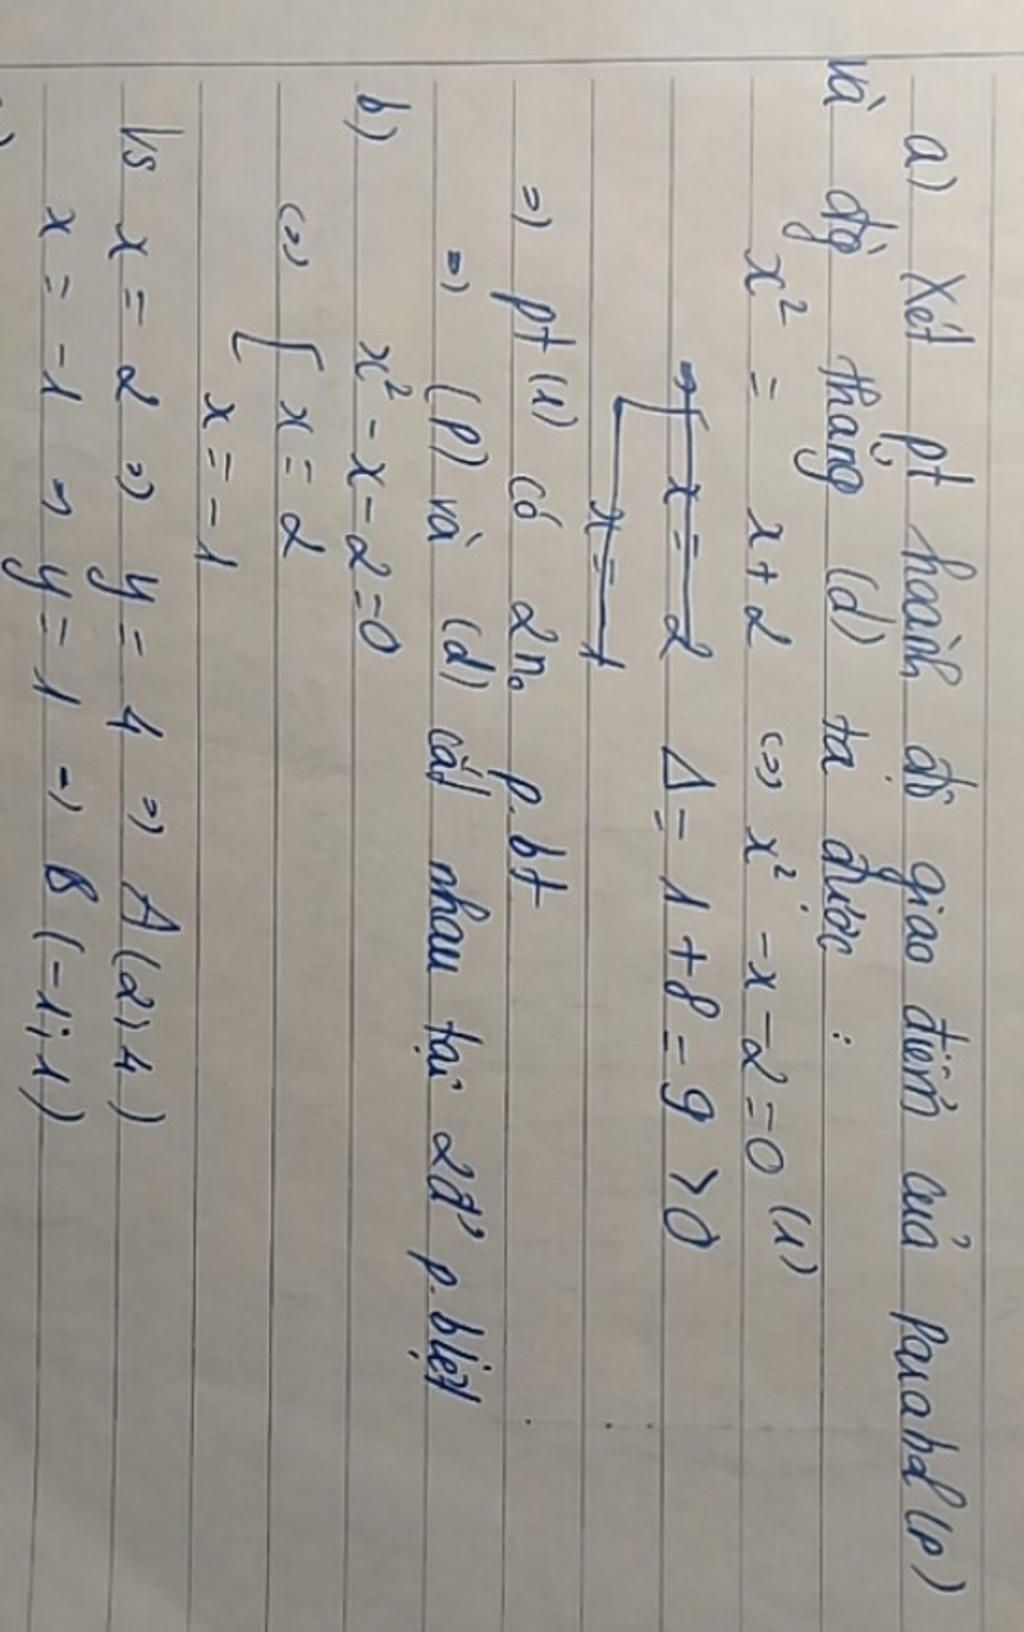 a) Xét pt hoành độ giao điểm của Parabol (P)
và đg thẳng (d) ta được :
x² = x + 2 (=) x² - x - 2 = 0 (1)
Δ = 1 + 8 = 9 > 0
=) pt (1) có 2 n₀ p.bt
=) (P) và (d) cắt nhau tại 2đ' p.biệt
b) x² - x - 2 = 0
(=) [ x = 2
x = -1
Vs x = 2 =) y = 4 =) A (2; 4)
x = -1 => y = 1 => B (-1; 1)